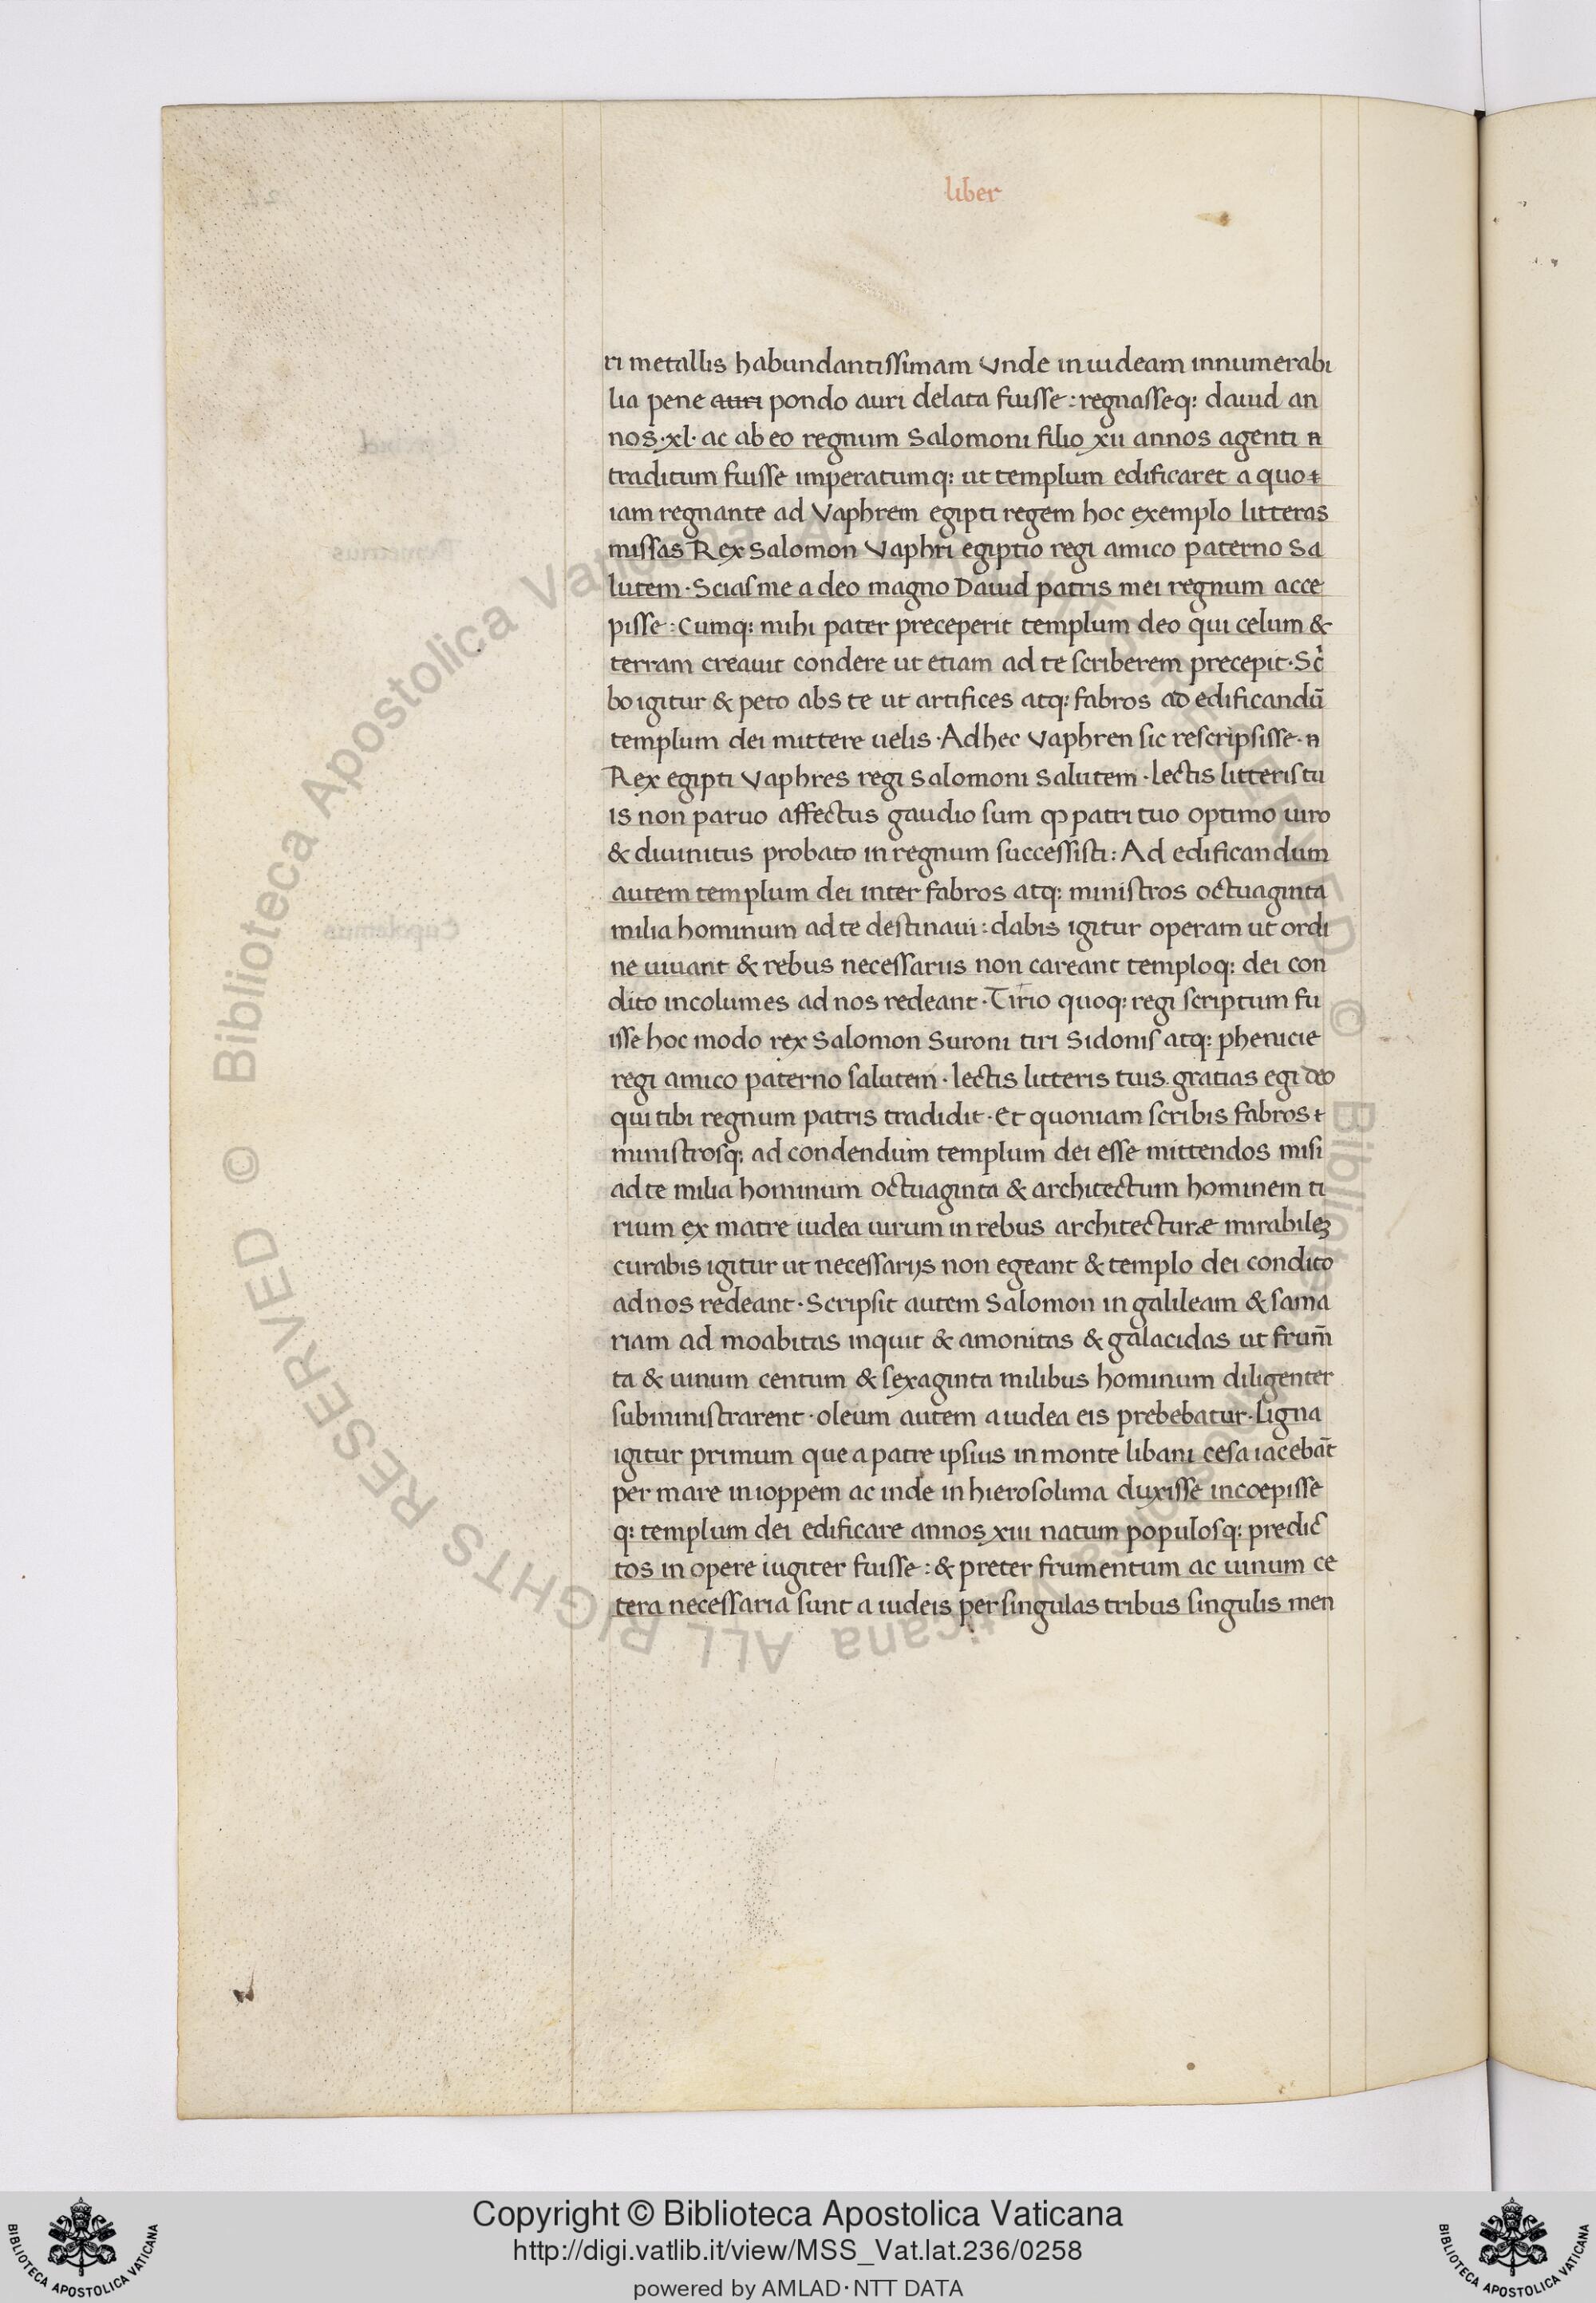 liber
ri metallis habundantissimam Vnde in iudeam innumerabi
lia pene auri pondo auri delata fuisse : regnasseq: dauid an
nos ·xl· ac ab eo regnum Salomoni filio xii annos agenti n
traditum fuisse imperatumq: ut templum edificaret a quo t
iam regnante ad Vaphrem egipti regem hoc exemplo litteras
missas Rex Salomon Vaphri egiptio regi amico paterno Sa
lutem · Scias me a deo magno Dauid patris mei regnum acce
pisse : Cumq: mihi pater preceperit templum deo qui celum &
terram creauit condere ut etiam ad te scriberem precepit · Sc̓
bo igitur & peto abs te ut artifices atq: fabros ad edificandū
templum dei mittere uelis · Ad hec Vaphren sic rescripsisse · n
Rex egipti Vaphres regi Salomoni Salutem · lectis litteris tu
is non paruo affectus gaudio sum ꝙ patri tuo optimo uiro
& diuinitus probato in regnum successisti : Ad edificandum
autem templum dei inter fabros atq: ministros octuaginta
milia hominum ad te destinaui : dabis igitur operam ut ordi
ne uiuant & rebus necessariis non careant temploq: dei con
dito incolumes ad nos redeant · Tirio quoq: regi scriptum fu
isse hoc modo rex Salomon Suroni tiri Sidonis atq: phenicie
regi amico paterno salutem · lectis litteris tuis gratias egi deo
qui tibi regnum patris tradidit · Et quoniam scribis fabros t
ministrosq: ad condendum templum dei esse mittendos misi
ad te milia hominum octuaginta & architectum hominem ti
rium ex matre iudea uirum in rebus architecturæ mirabileꝫ
curabis igitur ut necessarijs non egeant & templo dei condito
ad nos redeant · Scripsit autem Salomon in galileam & sama
riam ad moabitas inquit & amonitas & galacidas ut frum̄
ta & uinum centum & sexaginta milibus hominum diligenter
subministrarent · oleum autem a iudea eis prebebatur · Ligna
igitur primum que a patre ipsius in monte libani cesa iacebāt
per mare in ioppem ac inde in hierosolima duxisse incoepisse
q: templum dei edificare annos xiii natum populosq: predic
tos in opere iugiter fuisse : & preter frumentum ac uinum ce
tera necessaria sunt a iudeis per singulas tribus singulis men
© Biblioteca Apostolica Vaticana ALL RIGHTS RESERVED © Biblioteca Apostolica Vaticana ALL RIGHTS RESERVED
Copyright © Biblioteca Apostolica Vaticana
http://digi.vatlib.it/view/MSS_Vat.lat.236/0258
powered by AMLAD · NTT DATA
BIBLIOTECA APOSTOLICA VATICANA
BIBLIOTECA APOSTOLICA VATICANA